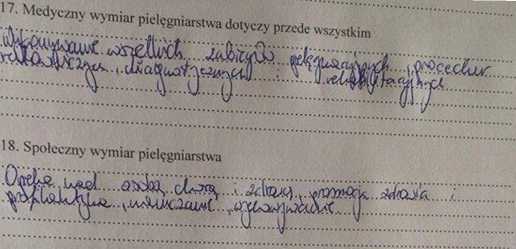 17. Medyczny wymiar pielęgniarstwa dotyczy przede wszystkim
Wykonywanie wszelkich zabiegów pielęgnacyjnych, procedur
diagnostycznych i rehabilitacyjnych
18. Społeczny wymiar pielęgniarstwa
Opieka nad osobą chorą i zdrową, promocja zdrowia i
profilaktyka, nauczanie,